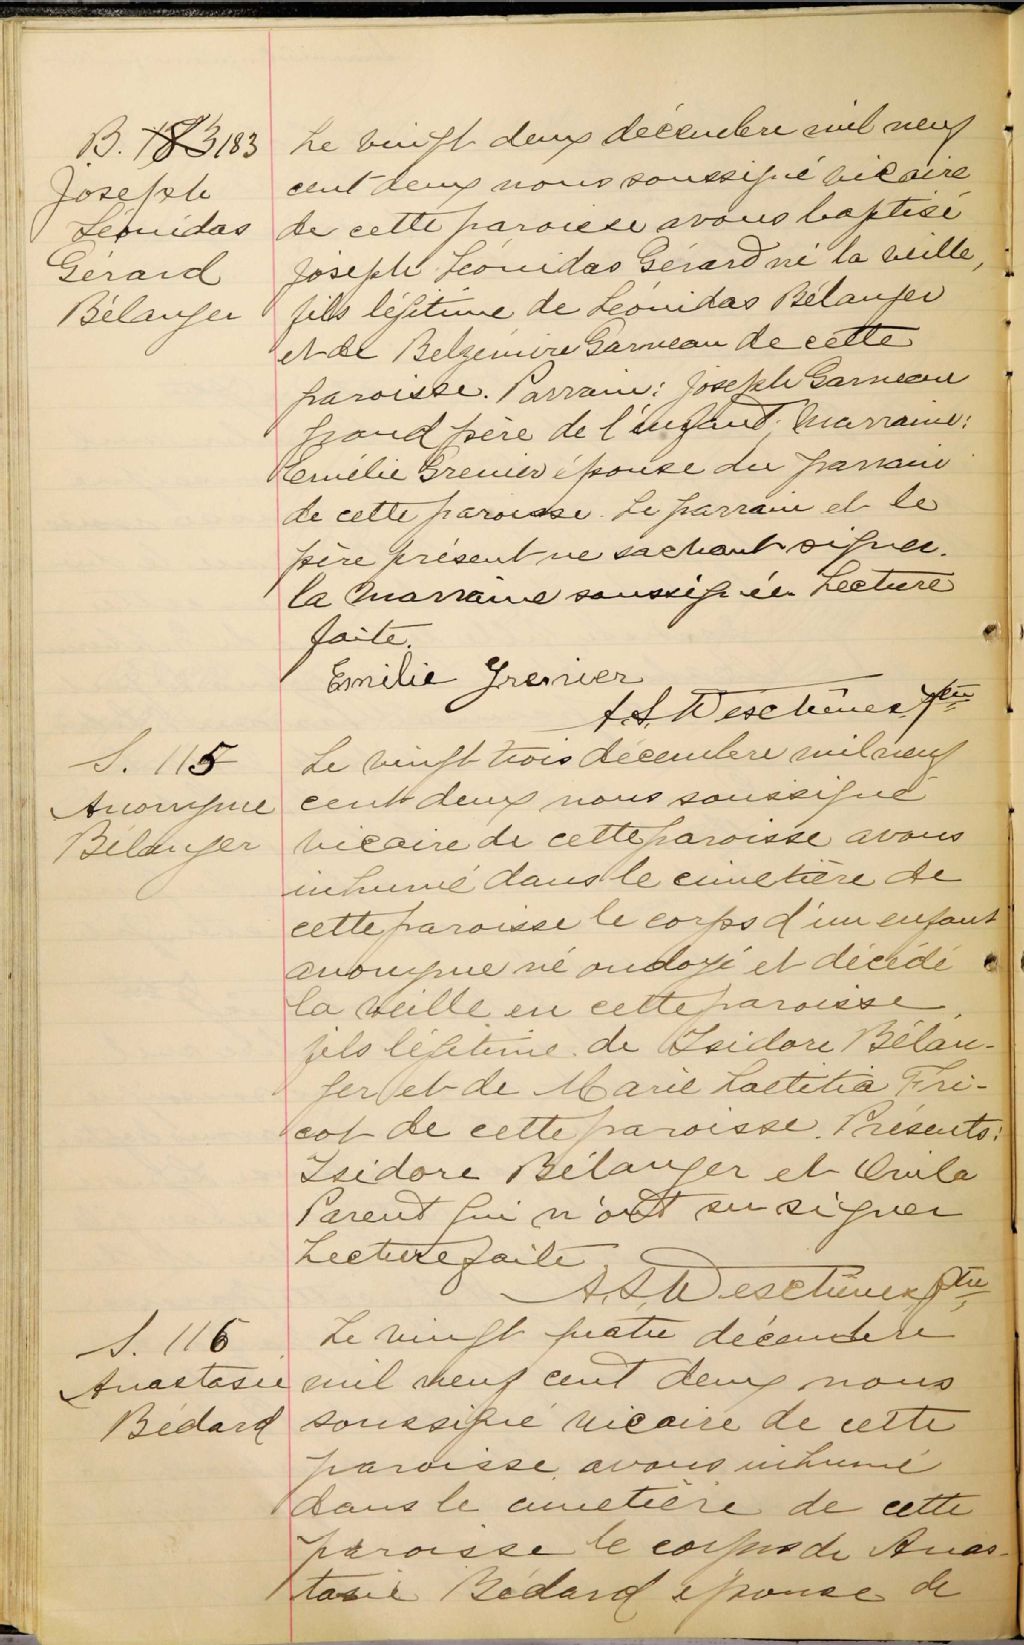 B. 183 183
Joseph
Léonidas
Gérard
Bélanger
Le vingt deux décembre mil neuf
cent deux nous soussigné vicaire
de cette paroisse avons baptisé
Joseph Léonidas Gérard né la veille,
fils légitime de Léonidas Bélanger
et de Belzémire Garneau de cette
paroisse. Parrain: Joseph Garneau
grand père de l'enfant, Marraine:
Emélie Grenier épouse du parrain
de cette paroisse. Le parrain et le
père présent ne sachant signer.
la Marraine soussignée. Lecture
faite.
Emilie Grenier
A. S. Deschênes Ptre
S. 115
Anonyme
Bélanger
Le vingt trois décembre mil neuf
cent deux nous soussigné
vicaire de cette paroisse avons
inhumé dans le cimetière de
cette paroisse le corps d'un enfant
anonyme né ondoyé et décédé
la veille en cette paroisse,
fils légitime de Isidore Bélan-
ger et de Marie Laetitia Fri-
cot de cette paroisse. Présents:
Isidore Bélanger et
Parent qui n'ont su signer
Lecture faite
A. S. Deschênes Ptre
S. 116
Anastasie
Bédard
Le vingt quatre décembre
mil neuf cent deux nous
soussigné vicaire de cette
paroisse avons inhumé
dans le cimetière de cette
paroisse le corps de Anas-
tasie Bédard épouse de